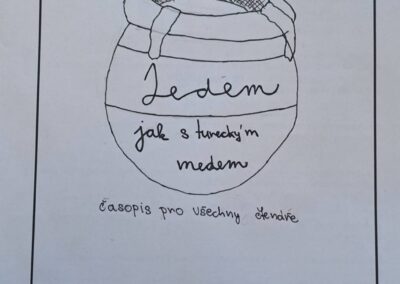 Jedem
jak s tureckým
medem
časopis pro všechny čtenáře